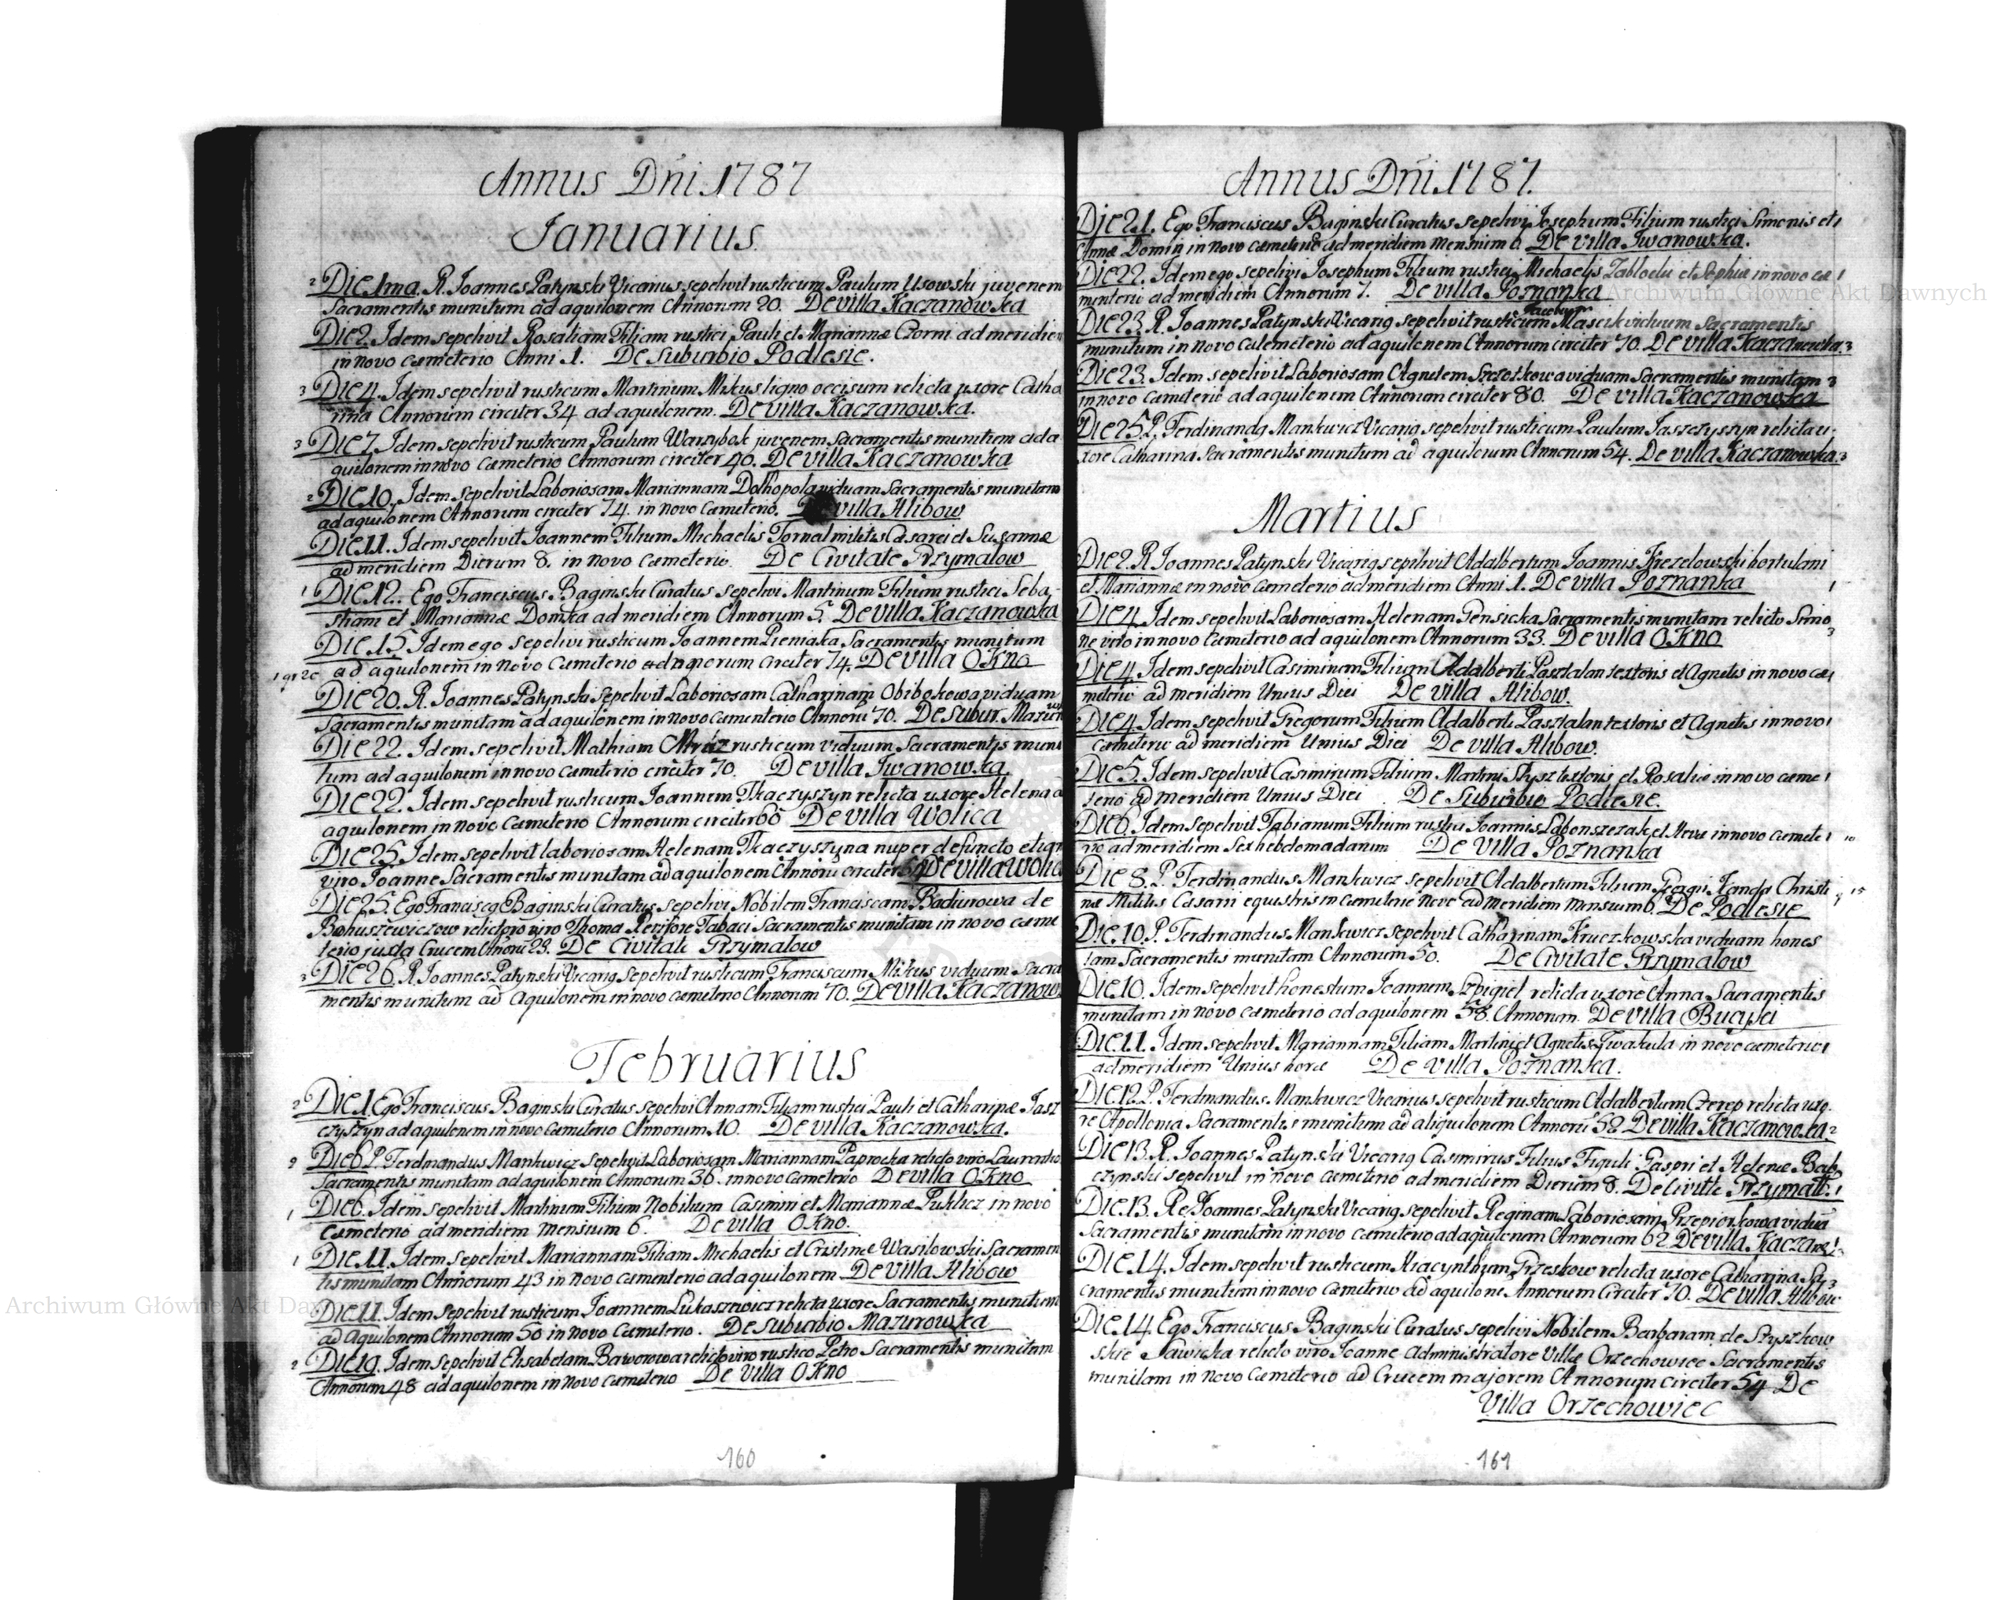 Annus Dni 1787
Januarius
2 Die 1ma. R. Joannes Patynski Vicarius sepelivit rusticum Paulum Usowski juvenem
Sacramentis munitum ad aquilonem Annorum 20. De villa Kaczanowka
Die 2. Idem sepelivit Rosaliam Filiam rustici Pauli et Mariannæ Czorni ad meridiem
in novo cæmeterio Anni 1. De Suburbio Podlesie.
3 Die 4. Idem sepelivit rusticum Martinum Mikus ligno occisum relicta uxore Catha
rina Annorum circiter 34 ad aquilonem. De villa Kaczanowka.
3 Die 7. Idem sepelivit rusticum Paulum Warzybok juvenem Sacramentis munitum ad a
quilonem in novo Cæmeterio Annorum circiter 40. De villa Kaczanowka
2 Die 10. Idem sepelivit Laboriosam Mariannam Dolhopola viduam Sacramentis munitam
ad aquilonem Annorum circiter 74. in novo Cæmeterio. De villa Hlibow
Die 11. Idem sepelivit Joannem Filium Michaelis Tornal militis Cæsarei et Susannæ
ad meridiem Dierum 8. in novo Cæmeterio. De Civitate Grzymalow
1 Die 12. Ego Franciscus Baginski Curatus sepelivi Martinum Filium rustici Seba
stiani et Mariannæ Domka ad meridiem Annorum 5. De villa Kaczanowka
Die 15 Idem ego sepelivi rusticum Joannem Pieniaka Sacramentis munitum
ad aquilonem in novo Cæmeterio Annorum circiter 74. De villa Okno
Die 20. R. Joannes Patynski Sepelivit Laboriosam Catharinam Obibokowa viduam
Sacramentis munitam ad aquilonem in novo Cæmenterio Annoru 70. De Subur. Mazur
Die 22. Idem sepelivit Mathiam Mróz rusticum viduum Sacramentis muni
tum ad aquilonem in novo cæmeterio circiter 70. De villa Iwanowka.
Die 22. Idem sepelivit rusticum Joannem Tkaczyszyn relicta uxore Helena a
aquilonem in novo Cæmeterio Annorum circiter 60 De villa Wolica
Die 25 Idem sepelivit laboriosam Helenam Tkaczyszyna nuper defuncto
viro Joanne Sacramentis munitam ad aquilonem Annoru circiter De villa Wolica
Die 25. Ego Franciscus Baginski Curatus sepelivi Nobilem Franciscam Badiurowa de
Bohuszewiczow relicto viro Thoma Revisore Tabaci Sacramentis munitam in novo cæme
terio juxta Crucem Annoru 23. De Civitate Grzymalow
3 Die 26. R. Joannes Patynski Vicarius Sepelivit rusticum Franciscum Mikus viduum Sacra
mentis munitum ad Aquilonem in novo cæmeterio Annorum 70. De villa Kaczanow
Februarius
2 Die 1. Ego Franciscus Baginski Curatus sepelivi Annam Filiam rustici Pauli et Catharinæ Jasz
czyszyn ad aquilonem in novo Cæmeterio Annorum 10. De villa Kaczanowka.
Die 6. P. Ferdinandus Mankwicz Sepelivit Laboriosam Mariannam Paprocka relicto viro Laurentio
Sacramentis munitam ad aquilonem Annorum 36. in novo Cæmeterio De villa Okno
1 Die 6. Idem sepelivit Martinum Filium Nobilium Casimiri et Mariannæ Puklicz in novo
Cæmeterio ad meridiem Mensium 6. De villa Okno.
1 Die 11. Idem sepelivit Mariannam Filiam Michaelis et Cristinæ Wasilowski Sacramen
tis munitam Annorum 43 in novo cæmenterio ad aquilonem De villa Hlibow
Die 11. Idem sepelivit rusticum Joannem Lukaszewicz relicta uxore Sacramentis munitum
ad Aquilonem Annorum 50 in novo Cæmeterio. De Suburbio Mazurowka
2 Die 19. Idem Sepelivit Elisabetam Baworowa relicto viro rustico Petro Sacramentis munitam
Annorum 48 ad aquilonem in novo Cæmeterio De villa Okno
160
Annus Dni 1787.
Die 21. Ego Franciscus Baginski Curatus sepelivi Josephum Filium rustici Simonis et
Annæ Domin in novo cæmeterio ad meridiem Mensium 6 De villa Iwanowka.
Die 22. Idem ego sepelivi Josephum Filium rustici Michaelis Zablocki et Sophiæ in novo cæ
menterio ad meridiem Annorum 7. De villa Poznanka
Die 23. R. Joannes Patynski Vicarius sepelivit rusticum Mascik viduum Sacramentis
munitum in novo Cæmeterio ad aquilonem Annorum circiter 70. De villa Kaczanowka. 3
Die 23. Idem sepelivit Laboriosam Agnetem Szlotkowa viduam Sacramentis munitam
in novo Cæmeterio ad aquilonem Annorum circiter 80. De villa Kaczanowka
Die 25. P. Ferdinandus Mankwicz Vicarius sepelivit rusticum Paulum Jaszczyszyn relicta u-
xore Catharina Sacramentis munitum ad aquilonem Annorum 54. De villa Kaczanowka. 3
Martius
Die 2. R Joannes Patynski Vicarius sepelivit Adalbertum Joannis Krezelowski hortulani
et Mariannæ in novo Cæmeterio ad meridiem Anni 1. De villa Poznanka 1
Die 4. Idem sepelivit Laboriosam Helenam Gensicka Sacramentis munitam relicto Simo
ne viro in novo Cæmeterio ad aquilonem Annorum 33. De villa Okno 3
Die 4. Idem sepelivit Casimirum Filium Adalberti Pasztalan textoris et Agnetis in novo cæ
meterio ad meridiem Unius Diei De villa Hlibow.
Die 4. Idem sepelivit Gregorium Filium Adalberti Pasztalan textoris et Agnetis in novo
cæmeterio ad meridiem Unius Diei De villa Hlibow.
Die 5. Idem sepelivit Casimirum Filium Martini Hysz textoris et Rosaliæ in novo cæme
terio ad meridiem Unius Diei De Suburbio Podlesie.
Die 6. Idem sepelivit Fabianum Filium rustici Joannis Labonszczak et Hevæ in novo cæmete
rio ad meridiem Sex hebdomadarum De villa Poznanka
Die 8. P. Ferdinandus Mankwicz sepelivit Adalbertum Filium Georgii Janda Christi
næ Militis Cæsarei equestris in cæmeterio Novo ad meridiem mensium 6. De Podlesie
Die 10. P. Ferdinandus Mankwicz sepelivit Catharinam Kruczkowska viduam hones
tam Sacramentis munitam Annorum 50. De Civitate Grzymalow
Die 10. Idem sepelivit honestum Joannem Szpigiel relicta uxore Anna Sacramentis
munitam in novo cæmeterio ad aquilonem 58. Annorum. De villa Bucyki
Die 11. Idem sepelivit Mariannam Filiam Martini et Agnetis Gwakula in novo cæmeterio
ad meridiem Unius horæ De villa Poznanka.
Die 12. P. Ferdinandus Mankwicz Vicarius sepelivit rusticum Adalbertum Czerep relicta uxo
re Apollonia Sacramentis munitum ad aliquilonem Annoru 52. De villa Kaczanowka 2
Die 13. R. Joannes Patynski Vicarius Casimirus Filius Figuli Gaspri et Helenæ Bab
czynski sepelivit in novo cæmeterio ad meridiem Dierum 8. De Civitte Grzymall. 1
Die 13. R. Joannes Patynski Vicarius sepelivit Reginam Laboriosam Przepiorkowa vidua
Sacramentis munitam in novo cæmeterio ad aquilonem Annorum 62 De villa Kaczano
Die 14. Idem sepelivit rusticum Hiacynthum Przeskow relicta uxore Catharina Sa
cramentis munitum in novo Cæmeterio ad aquilone Annorum Circiter 70. De villa Hlibow
Die 14. Ego Franciscus Baginski Curatus sepelivi Nobilem Barbaram de Szyszkow
skie Sawicka relicto viro Joanne Administratore Villæ Orzechowiec Sacramentis
munitam in novo Cæmeterio ad Crucem majorem Annorum circiter 54 De
Villa Orzechowiec
161
Archiwum Główne Akt Dawnych
Archiwum Główne Akt Dawnych